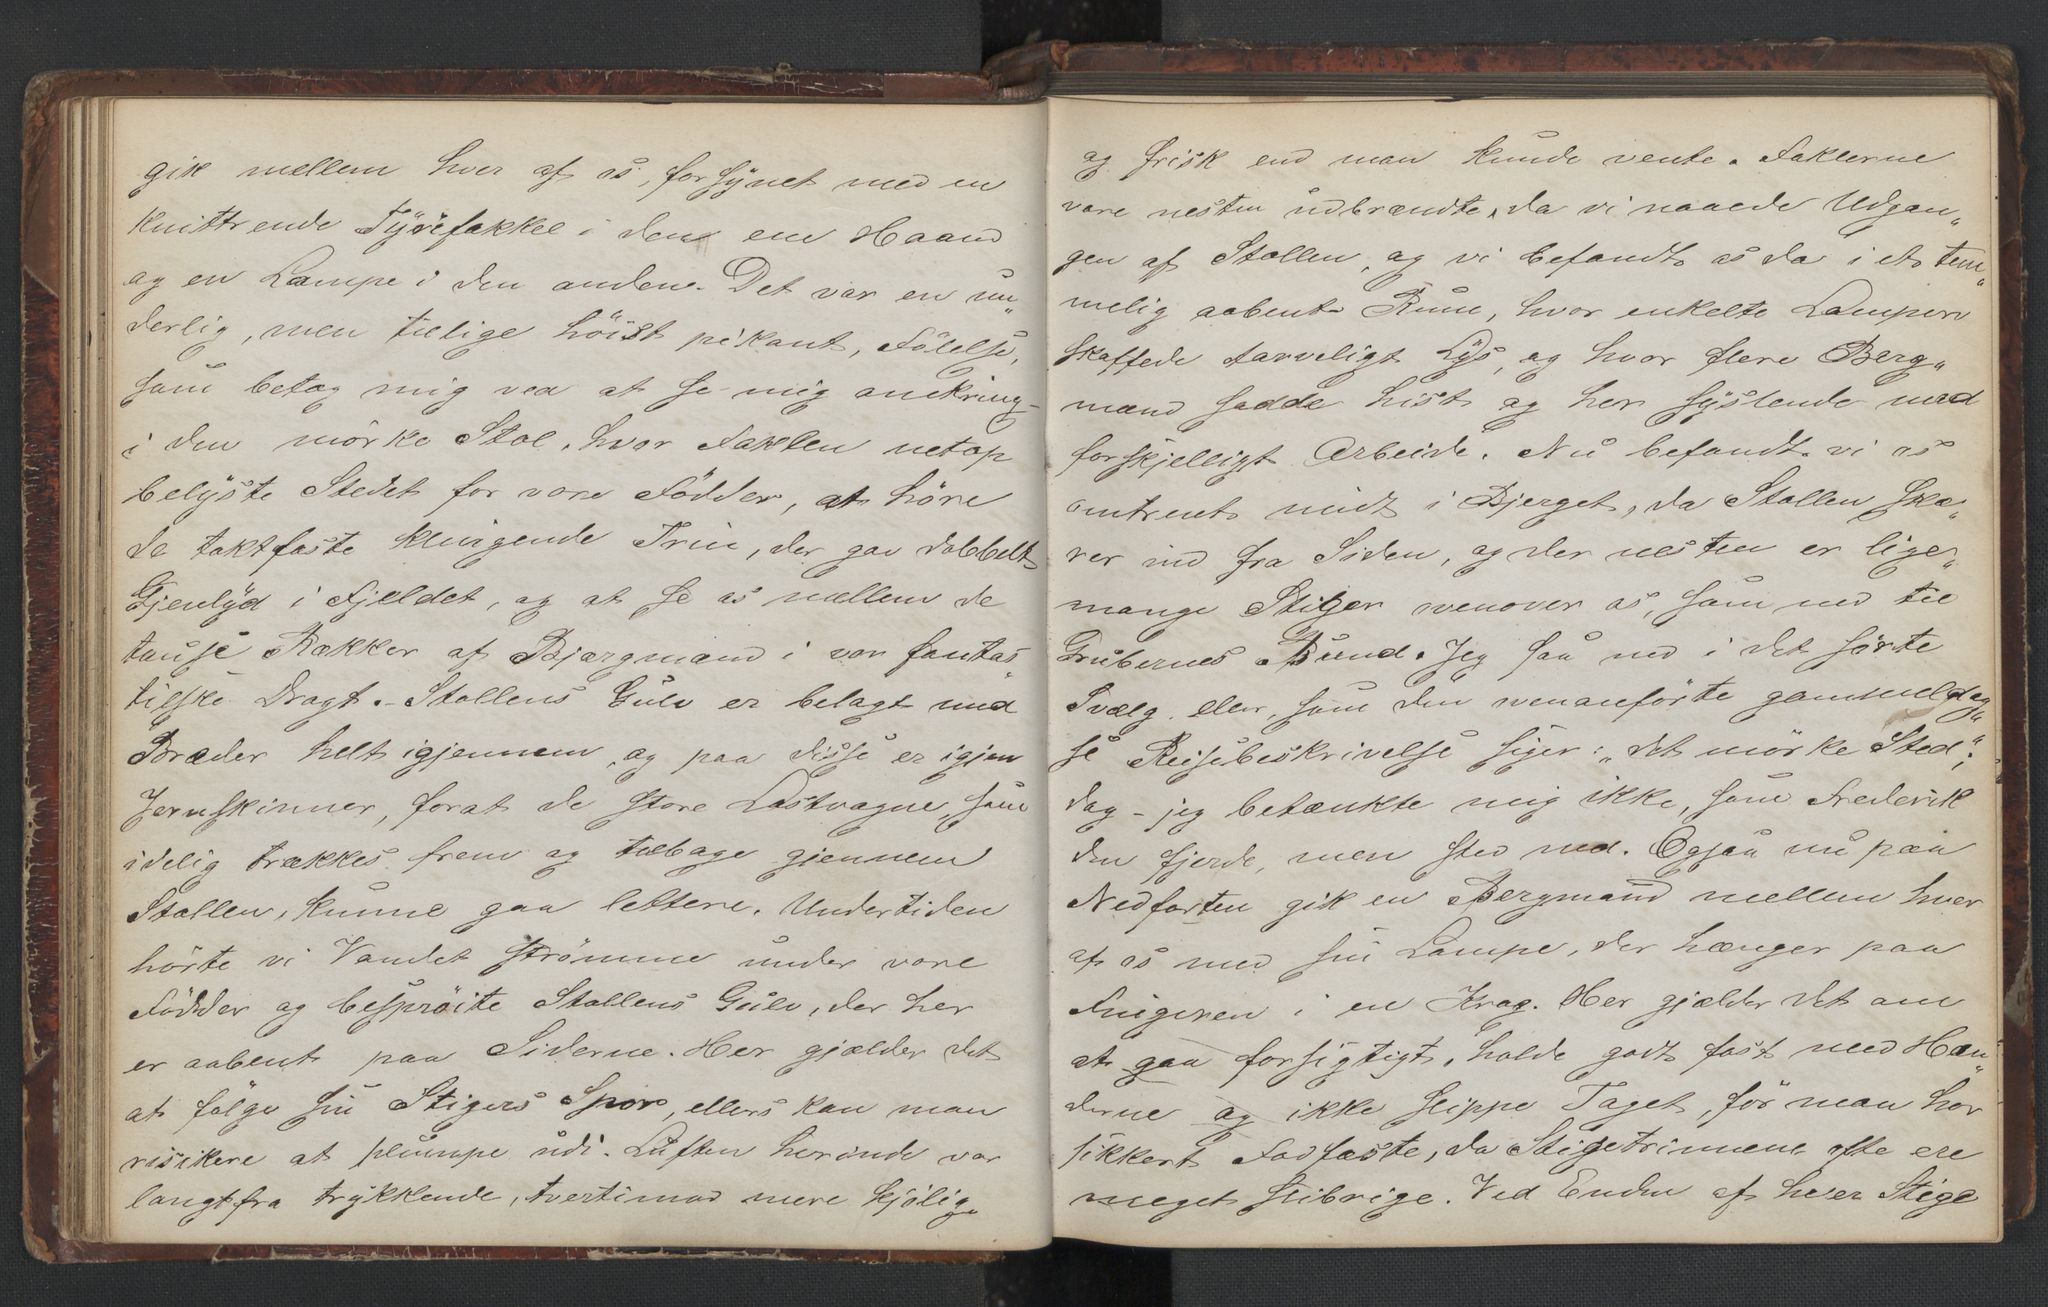 gik mellem hver af os, forsynet med en
knittrende Tyrifakkel i den ene Haand
og en Lampe i den anden. Det var en un„
derlig, men tillige höist pikant, Fölelse,
som betog mig ved at se mig omkring
i den mörke Stol, hvor Faklen netop
belyste Stedet for vore Födder, at höre
de taktfaste klingende Trin, der gav dobbelt
Gjenlyd i Fjeldet, og at se os mellem de
tause Rækker af Bjærgmænd i vor fantas
tiske Dragt. Stollens Gulv er belagt med
Bræder helt igjennem, og paa disse er igjen
Jernskinner, forat de store Lastvogne, som
idelig trækkes frem og tilbage gjennem
Stollen, kunne gaa lettere. Undertiden
hörte vi Vandet strömme under vore
Födder og bespröite Stollens Gulv, der her
er aabent paa Siderne. Her gjælder det
at fölge sin Stigers Spor, ellers kan man
risikere at plumpe udi. Luften herinde var
langtfra trykkende, tvertimod mere kjölig
og frisk end man kunde vente. Faklerne
vare nesten udbrændte, da vi naaede Udgan„
gen af Stollen, og vi befandt os da i et tem„
melig aabent Rum, hvor enkelte Lamper
skaffede tarveligt Lys, og hvor flere Berg„
mænd sadde hist og her syslende med
forskjelligt Arbeide. Nu befandt vi os
omtrent midt i Bjerget, da Stollen skæ„
rer ind fra Siden, og der nesten er lige„
mange Stiger ovenover os, som ned til
Grubernes Bund. Jeg saa ned i det sorte
Svælg eller, som den ovenanförte gammeldag„
se Reisebeskrivelse siger: „det mörke Sted“;
dog – jeg betænkte mig ikke, som Frederik
den fjerde, men steg ned. Ogsaa nu paa
Nedfarten gik en Bergmand mellem hver
af os med sin Lampe, der hænger paa
Fingeren i en Krog. Her gjælder det om
at gaa forsigtigt, holde godt fast med Hæn„
derne og ikke slippe Taget, för man har
sikkert Fodfæste, da Stigetrinnene ofte ere
meget slibrige. Ved Enden af hver Stige